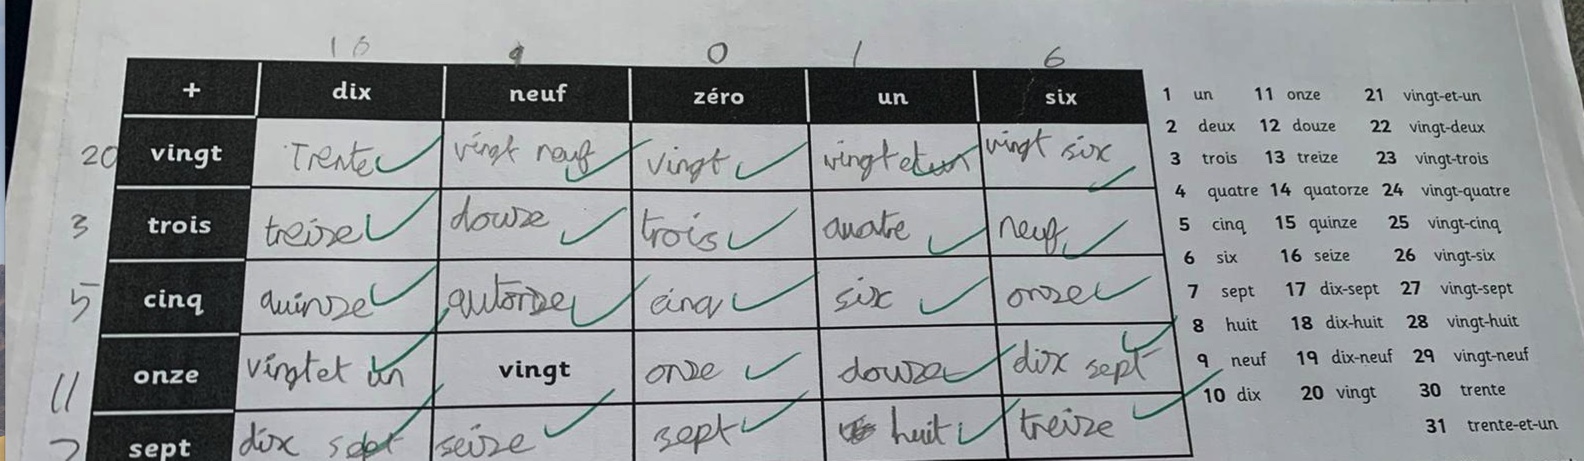 10 9 0 1 6
+ dix neuf zéro un six
20 vingt Trente vingt neuf vingt vingt et un vingt six
3 trois treize douze trois quatre neuf
5 cinq quinze qutorze cinq six onze
11 onze vingt et un vingt onze douze dix sept
7 sept dix sept seize sept huit treize
1 un 11 onze 21 vingt-et-un
2 deux 12 douze 22 vingt-deux
3 trois 13 treize 23 vingt-trois
4 quatre 14 quatorze 24 vingt-quatre
5 cinq 15 quinze 25 vingt-cinq
6 six 16 seize 26 vingt-six
7 sept 17 dix-sept 27 vingt-sept
8 huit 18 dix-huit 28 vingt-huit
9 neuf 19 dix-neuf 29 vingt-neuf
10 dix 20 vingt 30 trente
31 trente-et-un